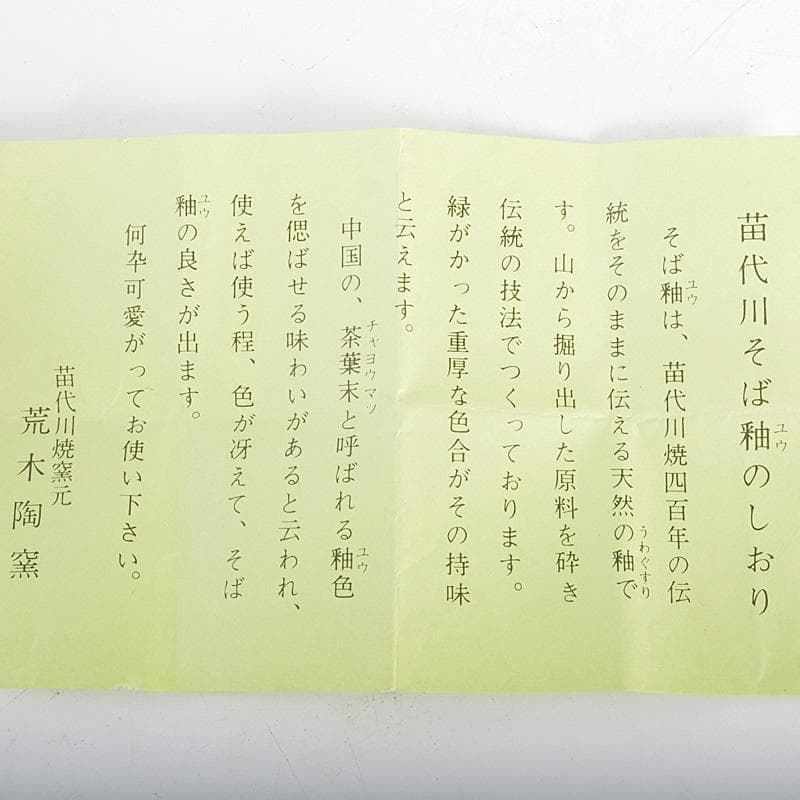 苗代川そば釉のしおり
そば釉は、苗代川焼四百年の伝
統をそのままに伝える天然の釉で
す。山から掘り出した原料を砕き
伝統の技法でつくっております。
緑がかった重厚な色合がその持味
と云えます。
中国の、茶葉末と呼ばれる釉色
を偲ばせる味わいがあると云われ、
使えば使う程、色が冴えて、そば
釉の良さが出ます。
何卆可愛がってお使い下さい。
苗代川焼窯元
荒木陶窯